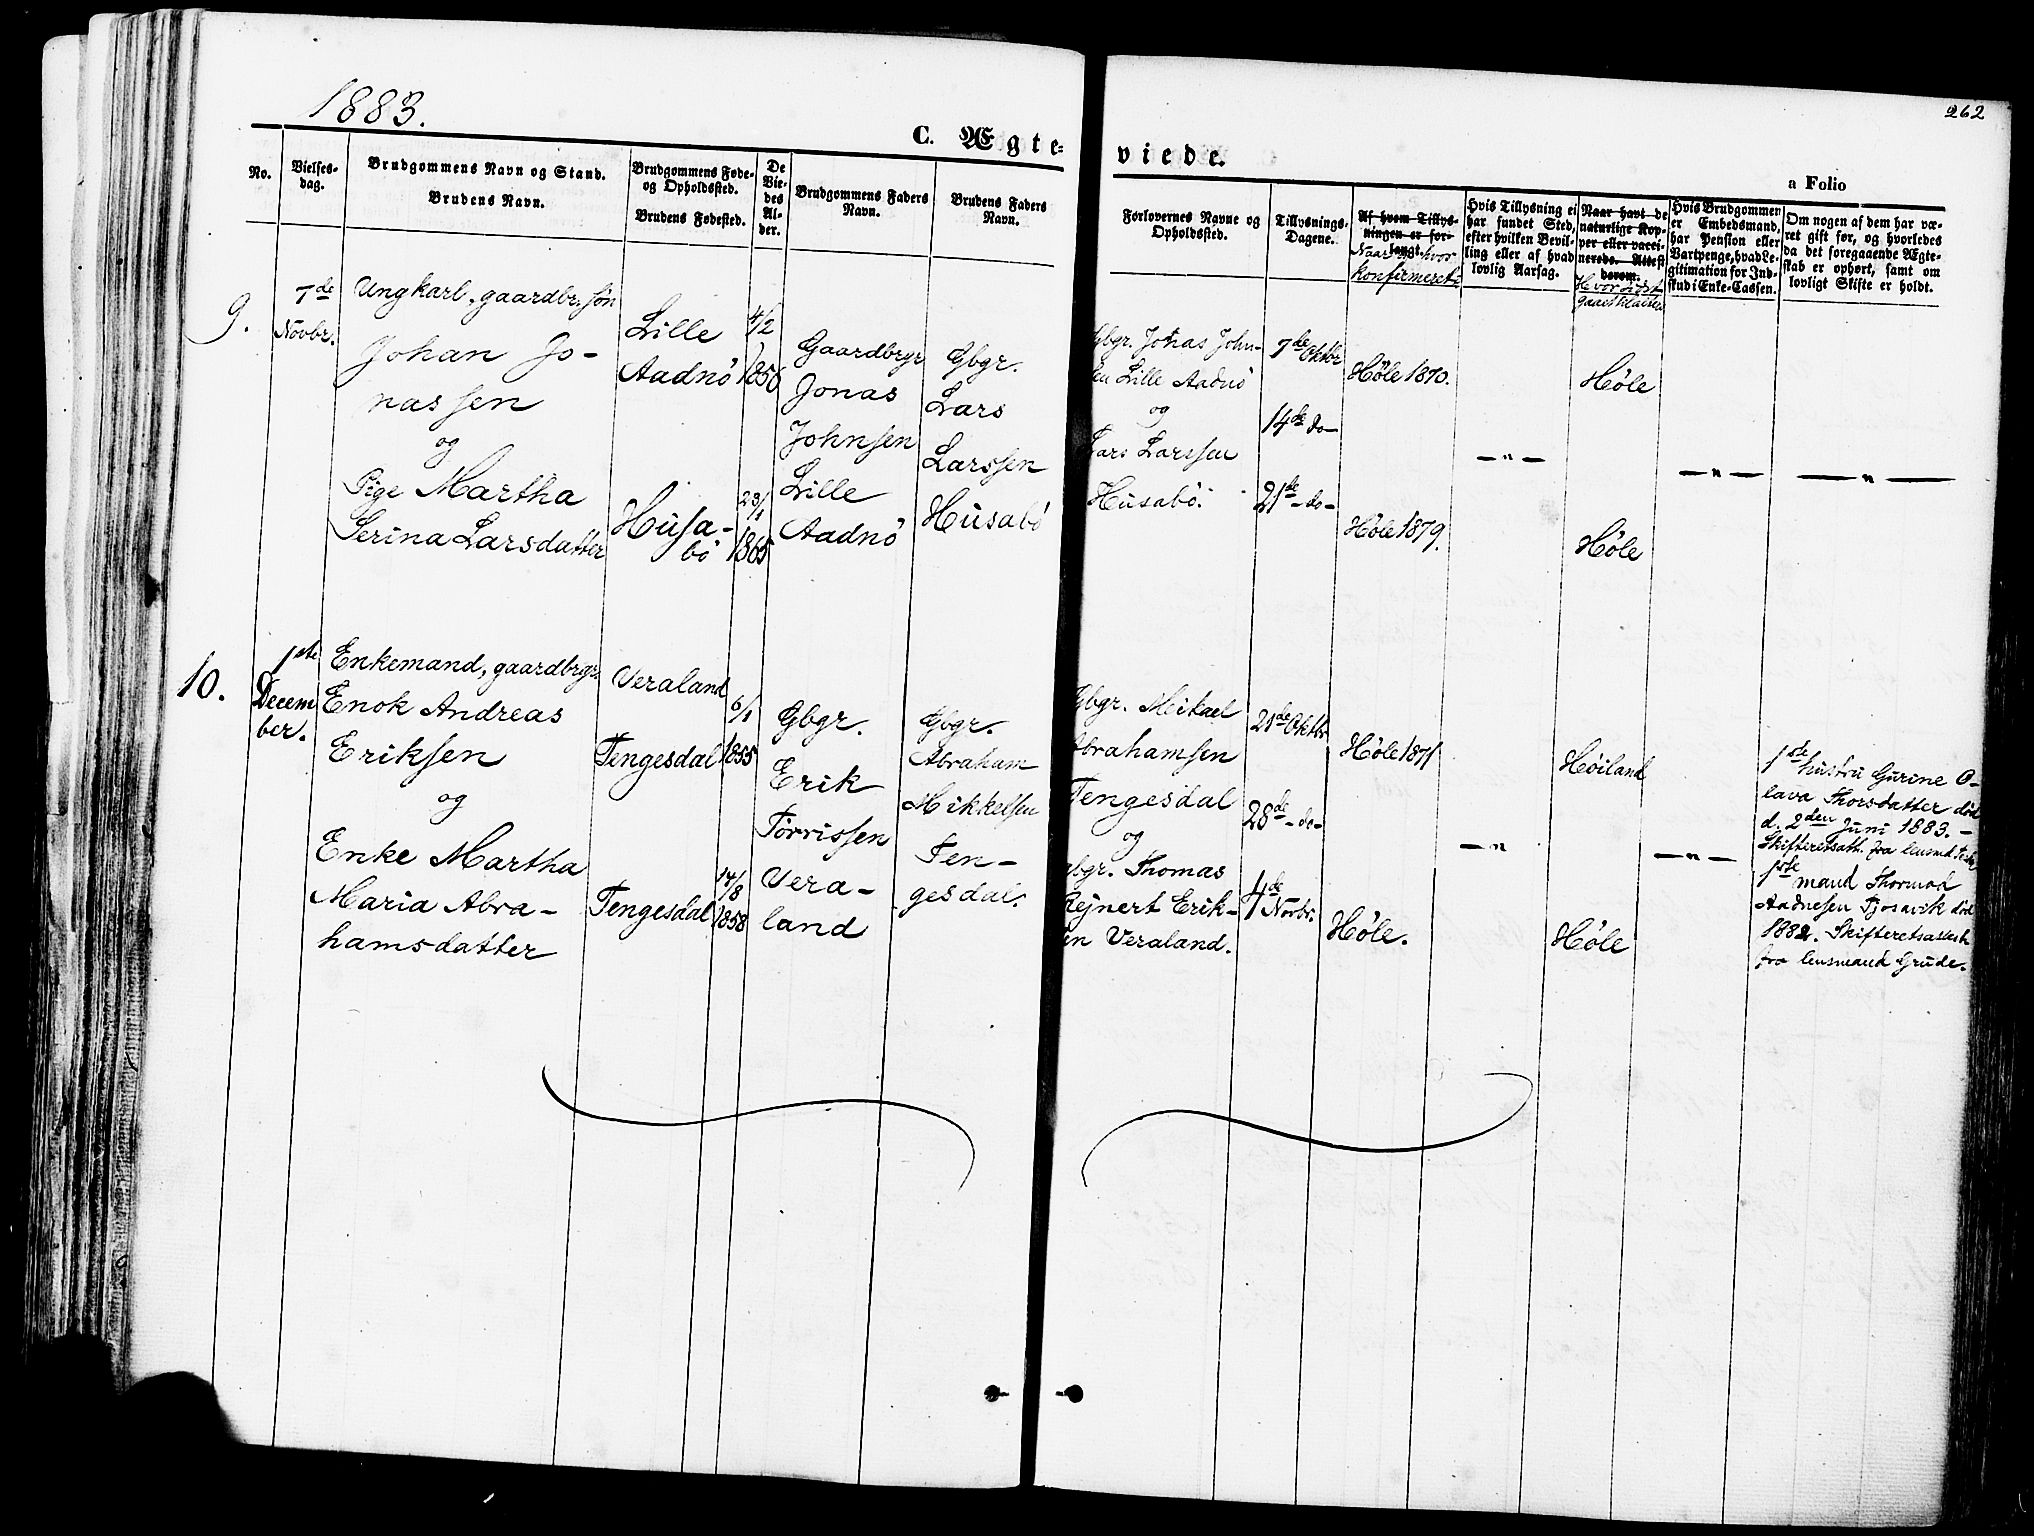 1883.
262
C. Ægte-
viede.
a Folio
No.
Vielses-
dag.
Brudgommens Navn og Stand.
Brudens Navn.
Brudgommens Føde-
og Opholdssted.
Brudens Fødested.
De
Vie-
des
Al-
der.
Brudgommens Faders
Navn.
Brudens Faders
Navn.
Forlovernes Navne og
Opholdssted.
Tillysnings-
Dagene.
Af hvem Tillys-
ningen er for-
langt.
Naar og hvor
konfirmeret.
Hvis Tillysning ei
har fundet Sted,
efter hvilken Bevil-
ling eller af hvad
lovlig Aarsag.
Naar havt de
naturlige Kop-
per eller vacci-
nerede. Attest
derom.
Hvor sidst
Hvis Brudgommen
er Embedsmand,
har Pension eller
Vartpenge, hvad Le-
gitimation for Ind-
skud i Enke-Cassen.
Om nogen af dem har væ-
ret gift før, og hvorledes
da det foregaaende Ægte-
skab er ophørt, samt om
lovligt Skifte er holdt.
9.
7de
Novbr.
Ungkarl, gaardbr. søn
Johan Jo-
nassen
og
Pige Martha
Serina Larsdatter
Lille
Aadnö
Husa-
bö
4/2
1856
23/1
1865
Gaardbrgr
Jonas
Johnsen
Lille
Aadnö
Gbgr.
Lars
Larssen
Husabö
Gbgr. Jonas John-
sen Lille Aadnö
og
Lars Larssen
Husabö.
7de Oktbr
14de do-
21de - do-
Höle 1870.
Höle 1879.
- " -
Höle
Höle
- " -
- " -
10.
1ste
Decem
ber.
Enkemand, gaardbrgr.
Enok Andreas
Eriksen
og
Enke Martha
Maria Abra-
hamsdatter
Veraland
Tengesdal
Tengesdal
6/1
1855
14/8
1858
Gbgr.
Erik
Torrissen
Vera-
land
Gbgr.
Abraham
Mikkelsen
Ten-
gesdal.
Gbgr. Mikael
Abrahamsen
Tengesdal
og
Gbgr. Thomas
Rejnert Erik-
sen Veraland.
21de Oktbr
28de - do-
4de Novbr.
Höle 1871
Höle.
- " -
Höiland
Höle
- " -
1ste hustru Gurine O-
lava Thorsdatter död
d. 2den Juni 1883. -
Skifteretsatt. fra lensmd
1ste mand Thormod
Aadnesen Fjosavik död
1882. Skifteretsattest
fra lensmand Grude.